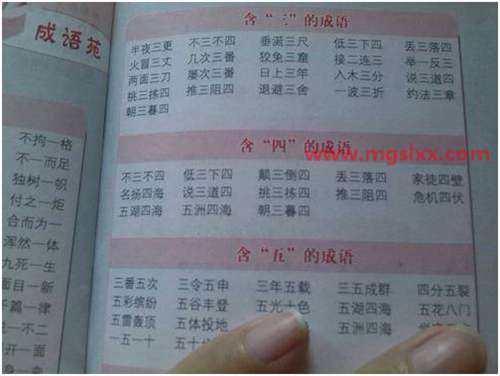 成语苑
不拘一格
不一而足
独树一帜
付之一炬
合而为一
浑然一体
九死一生
面目一新
篇一律
一不二
开一面
含“三”的成语
半夜三更 不三不四 垂涎三尺 低三下四 丢三落四
火冒三丈 几次三番 狡兔三窟 接二连三 举一反三
两面三刀 屡次三番 日上三竿 入木三分 说三道四
挑三拣四 推三阻四 退避三舍 一波三折 约法三章
朝三暮四
www.mgslxx.com
含“四”的成语
不三不四 低三下四 颠三倒四 丢三落四 家徒四壁
名扬四海 说三道四 挑三拣四 推三阻四 危机四伏
五湖四海 五洲四海 朝三暮四
含“五”的成语
三番五次 三令五申 三年五载 三五成群 四分五裂
五彩缤纷 五谷丰登 五光十色 五湖四海 五花八门
五雷轰顶 五体投地 五洲四海
一五一十 五十